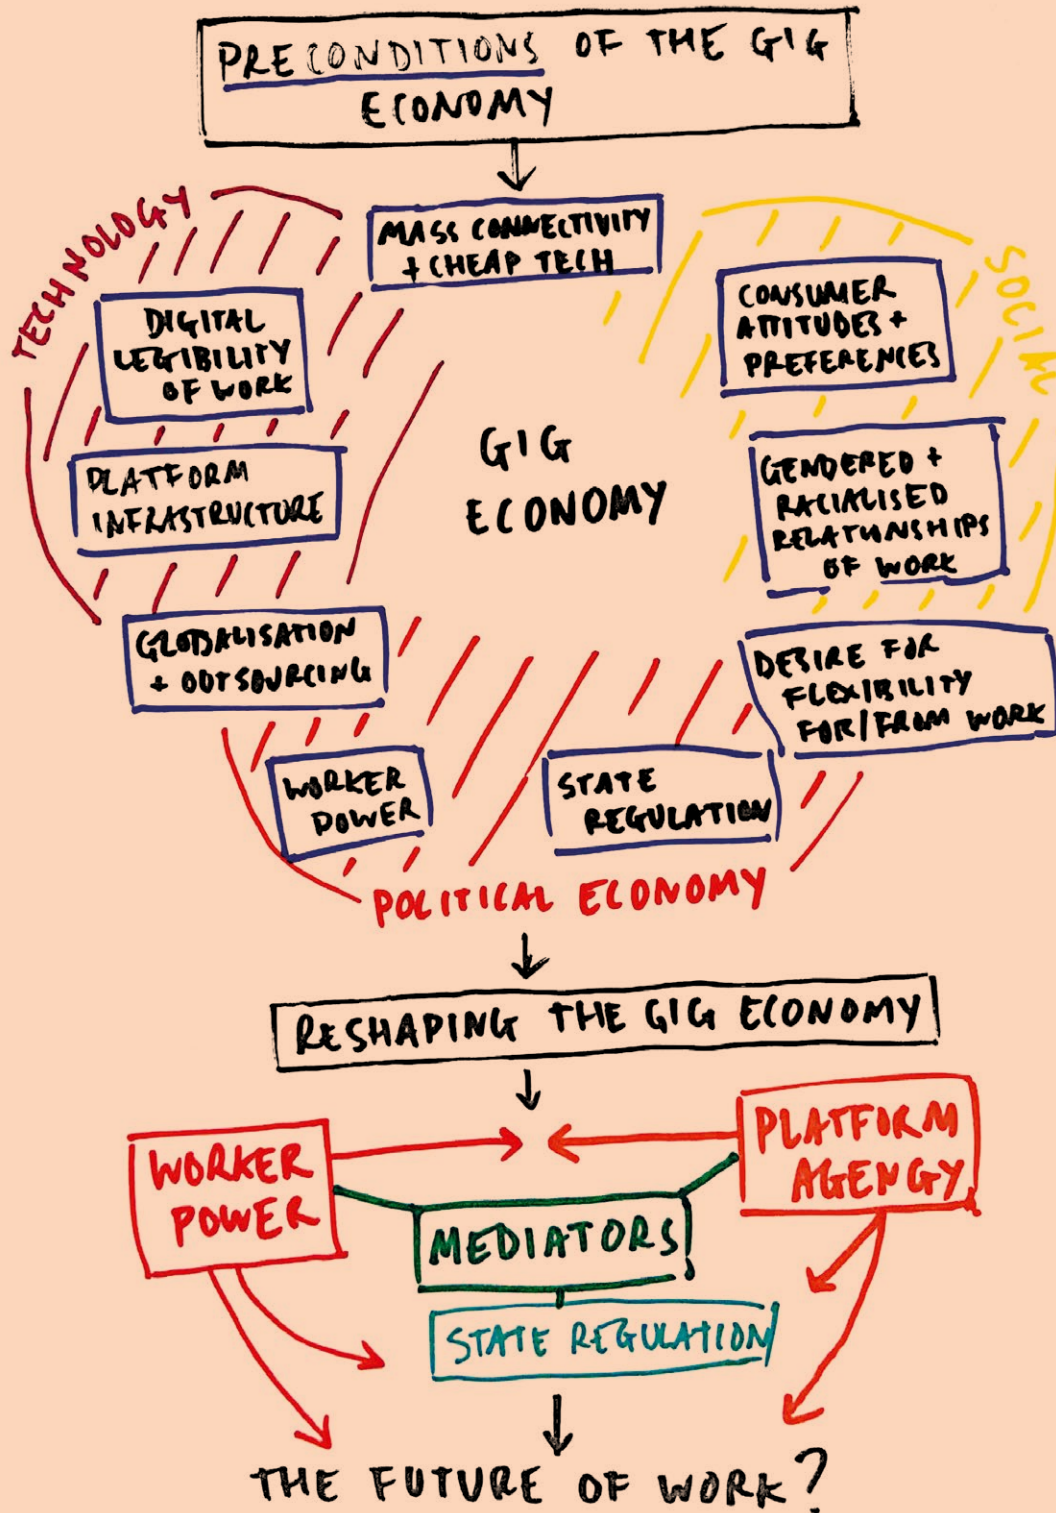 PRECONDITIONS OF THE GIG
ECONOMY
MASS CONNECTIVITY
+ CHEAP TECH
TECHNOLOGY
SOCIAL
DIGITAL
LEGIBILITY
OF WORK
CONSUMER
ATTITUDES +
PREFERENCES
PLATFORM
INFRASTRUCTURE
GIG
ECONOMY
GENDERED +
RACIALISED
RELATIONSHIPS
OF WORK
GLOBALISATION
+ OUTSOURCING
DESIRE FOR
FLEXIBILITY
FOR/FROM WORK
WORKER
POWER
STATE
REGULATION
POLITICAL ECONOMY
RESHAPING THE GIG ECONOMY
WORKER
POWER
PLATFORM
AGENGY
MEDIATORS
STATE REGULATION
THE FUTURE OF WORK?